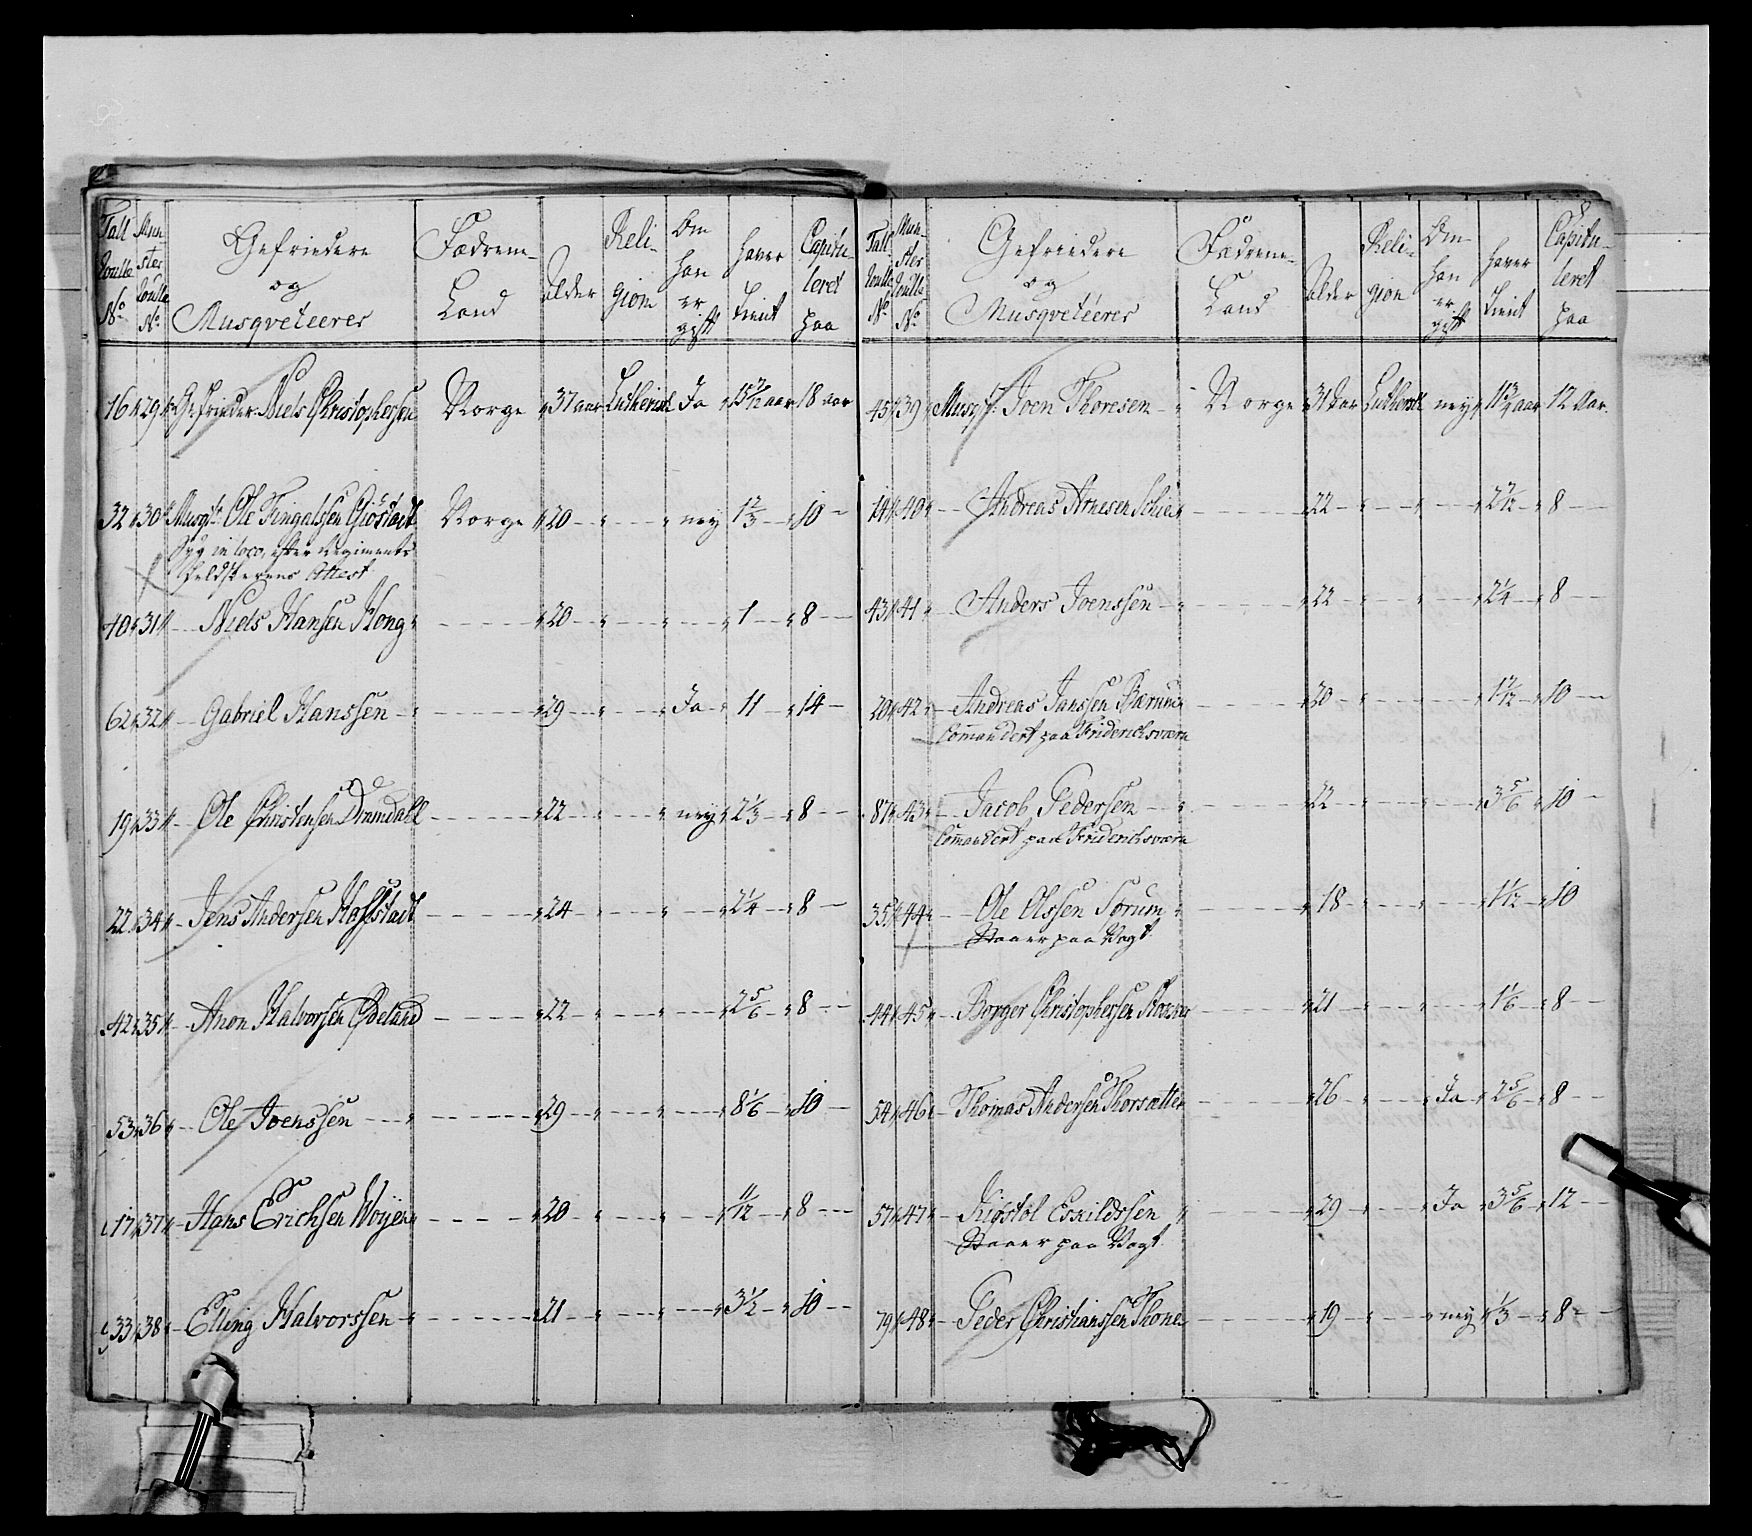 Tall Roulle No | Mun ster Roulle No | Gefriedere og Musqveteerer | Fædrene Land | Alder | Religion | Om han er gift | haver tient | Capituleret paa
16 | 29 | Gefrieder Niels Christophersen | Norge | 37 aar | Luthersk | Ja | 15 7/12 aar | 18 aar
32 | 30 | Musqt: Ole Fingalssen Giöstadt | Norge | 20 | - | ney | 1 2/3 | 10
Syg in loco, efter Regiments
Feldskerens Attest
40 | 31 | Niels Hansen Hong | - | 20 | - | - | 1 | 8
62 | 32 | Gabriel Hanssen | - | 29 | - | Ja | 11 | 14
19 | 33 | Ole Christensen Dramdall | - | 22 | - | ney | 2 1/3 | 8
22 | 34 | Jens Andersen Haffstadt | - | 24 | - | - | 2 1/4 | 8
42 | 35 | Anon Halvorsen Ödeland | - | 22 | - | - | 2 5/6 | 8
53 | 36 | Ole Joenssen | - | 29 | - | - | 8 1/6 | 10
17 | 37 | Hans Erichsen Woyen | - | 20 | - | - | 11/12 | 8
33 | 38 | Elling Halvorssen | - | 21 | - | - | 3 1/2 | 10
Tall Roulle No | Mun ster Roulle No | Gefriedere og Musqveteerer | Fædrene Land | Alder | Religion | Om han er gift | haver tient | Capituleret paa
45 | 39 | Musqt: Joen Thoresen | Norge | 31 Aar | Luthersk | ney | 11 3/4 aar | 12 Aar.
14 | 40 | Andreas Arnesen Schie | - | 22 | - | - | 2 7/12 | 8
43 | 41 | Anders Joenssen | - | 22 | - | - | 2 1/4 | 8
20 | 42 | Andreas Janssen Bærum | - | 20 | - | - | 1 7/12 | 10
Commandert paa Friderichsværn
87 | 43 | Jacob Pedersen | - | 22 | - | - | 3 5/6 | 10
Commandert paa Friderichsværn
35 | 44 | Ole Olssen Sörum | - | 18 | - | - | 1 1/12 | 10
Staaer paa Vagt
44 | 45 | Borger Christophersen | - | 21 | - | - | 1 1/6 | 8
54 | 46 | Thomas Andersen Thorsætter | - | 26 | - | Ja | 2 5/6 | 8
57 | 47 | Kigstol Eskildssen | - | 29 | - | Ja | 3 5/6 | 12
Staaer paa Vagt
79 | 48 | Peder Christianssen Thone | - | 19 | - | ney | 1/3 | 8